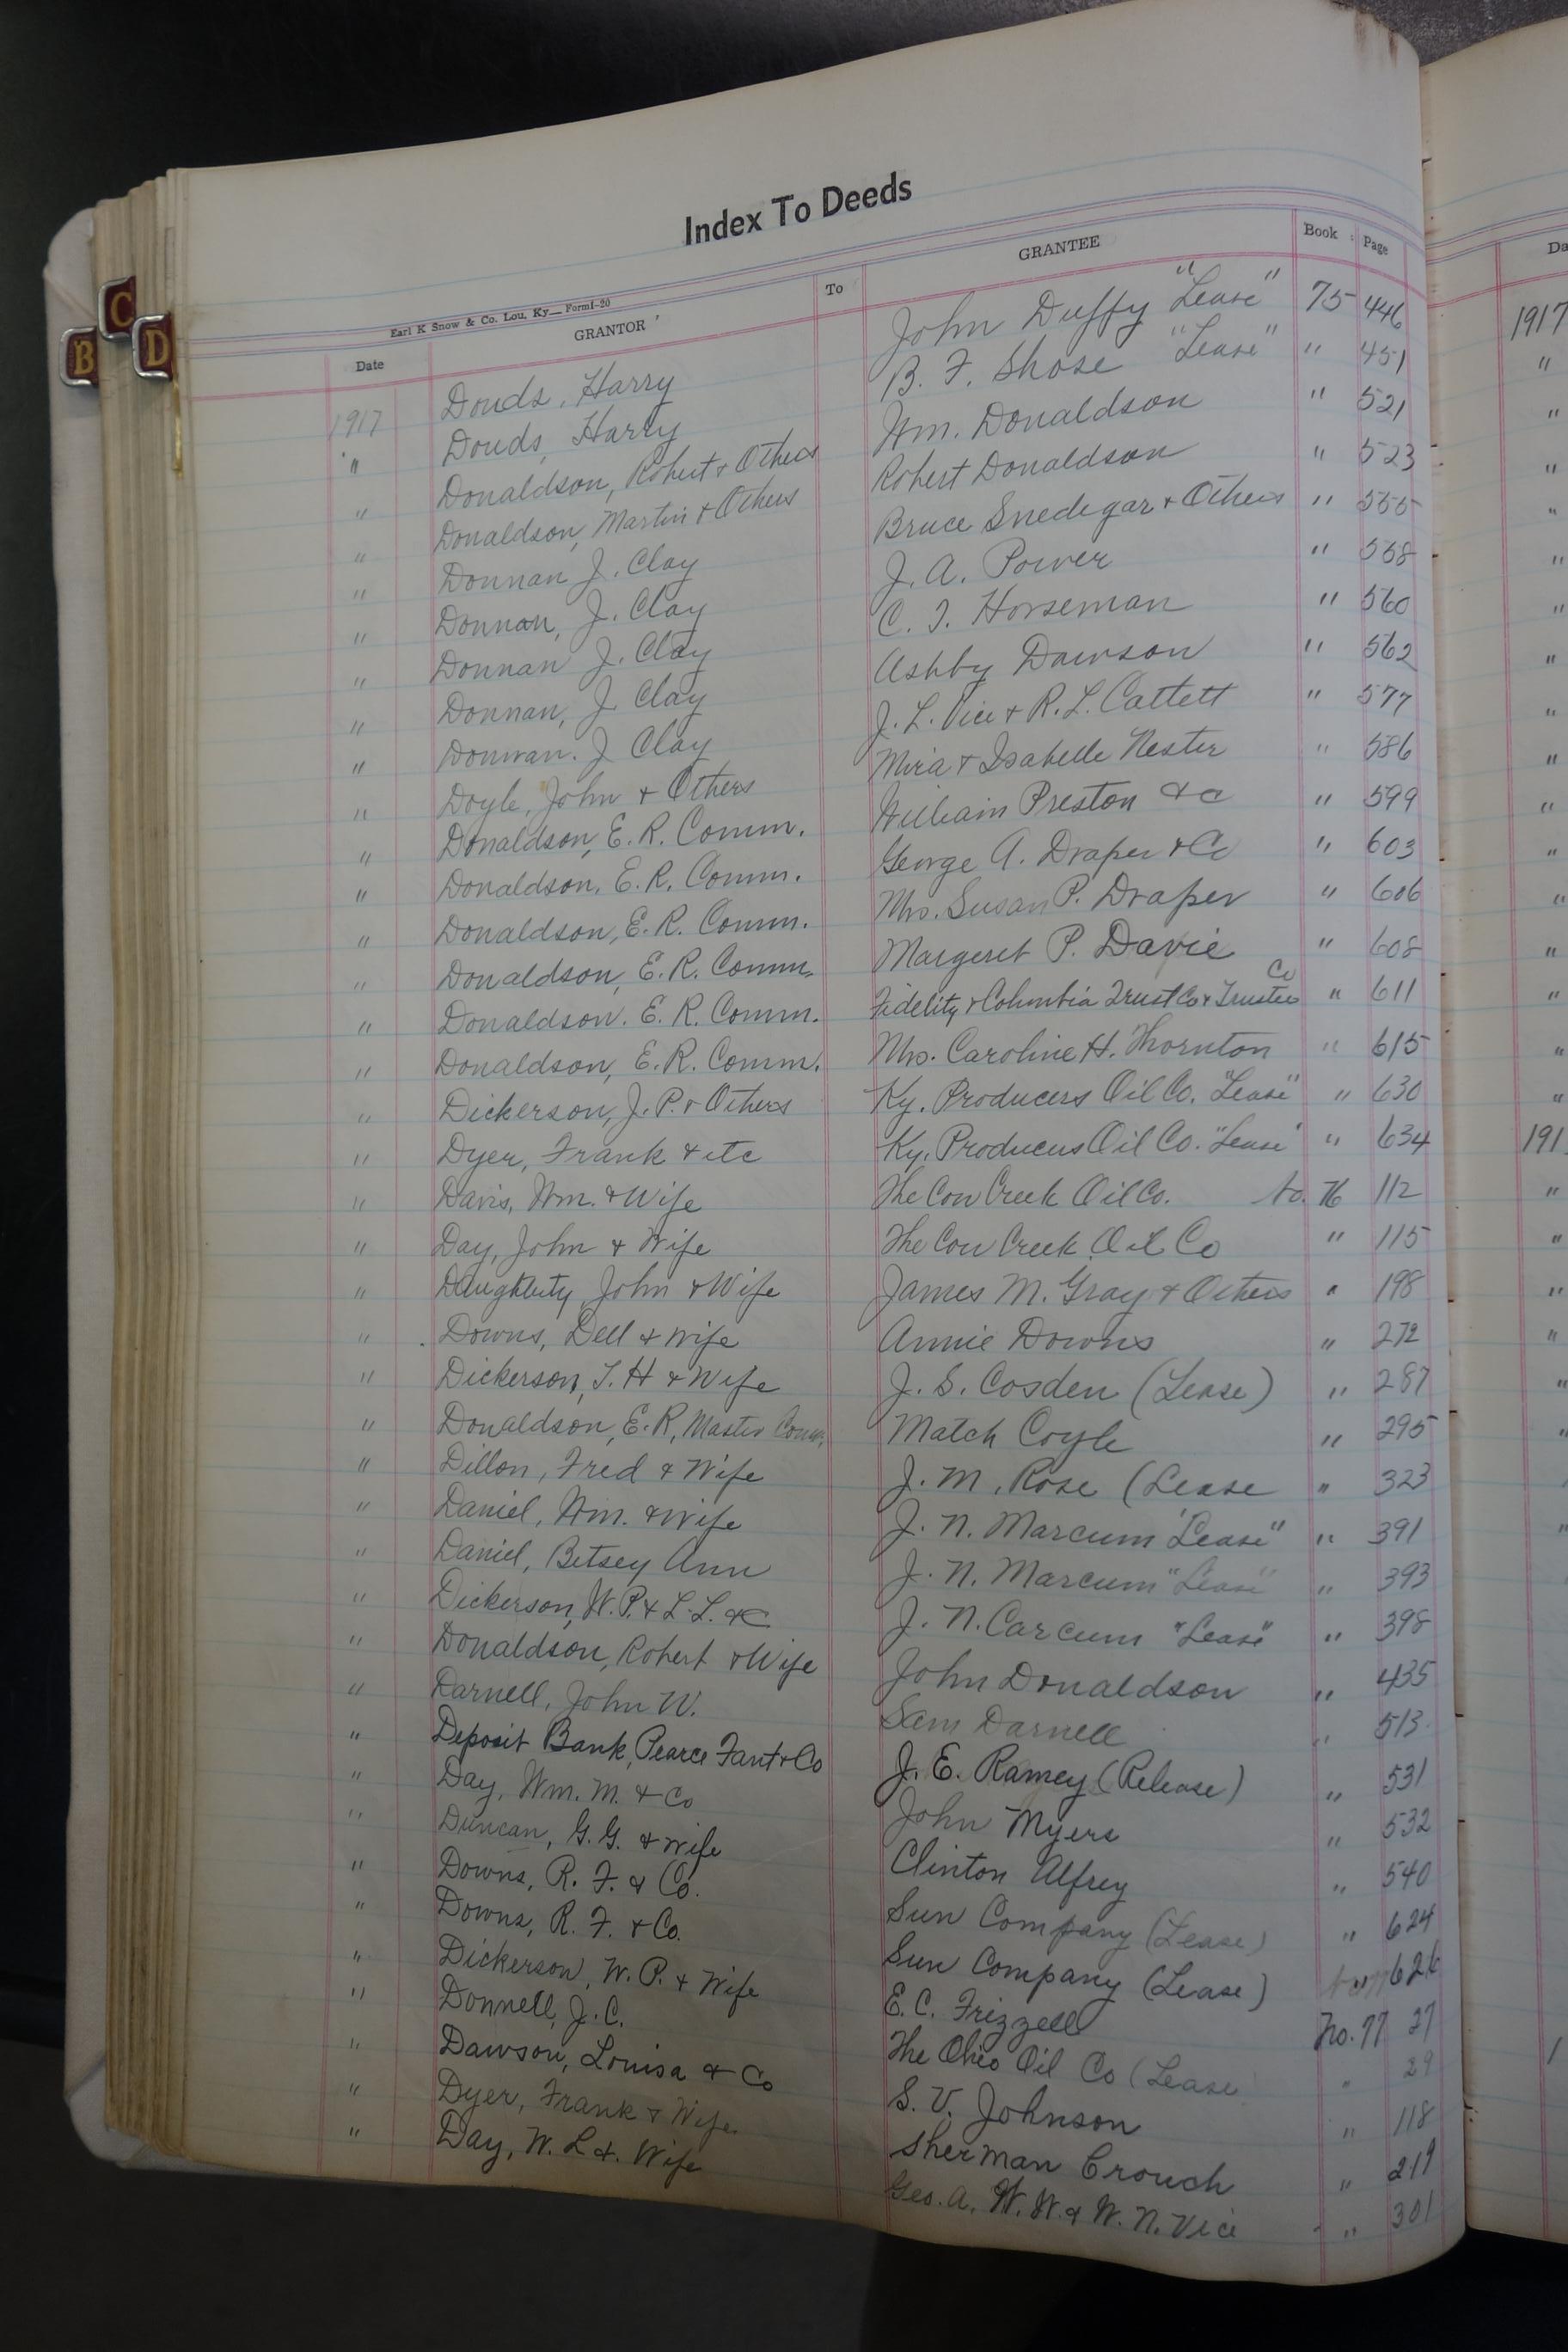 Index To Deeds
Earl K Snow & Co. Lou, Ky— Form1-20
Date GRANTOR To GRANTEE Book Page
1917 Douds, Harry John Duffy "Lease" 75 446
" Douds, Harry B. F. Shose "Lease" " 451
" Donaldson, Robert & Others Wm. Donaldson " 521
" Donaldson, Martin & Others Robert Donaldson " 523
" Donnan J. Clay Bruce Snedegar & Others " 555
" Donnan, J. Clay J. A. Power " 558
" Donnan J. Clay C. T. Horseman " 560
" Donnan, J. Clay Ashby Dawson " 562
" Donnan. J Clay J. L. Vice & R. L. Cattett " 577
" Doyle, John & Others Mira & Isabelle Nester " 586
" Donaldson, E. R. Comm. William Preston &c " 599
" Donaldson, E. R. Comm. George A. Draper & Co " 603
" Donaldson, E. R. Comm. Mrs. Susan P. Draper " 606
" Donaldson, E. R. Comm. Margeret P. Davie " 608
" Donaldson. E. R. Comm. Fidelity & Columbia Trust Co & Trustee Co " 611
" Donaldson, E. R. Comm. Mrs. Caroline H. Thornton " 615
" Dickerson, J. P. & Others Ky. Producers Oil Co. "Lease" " 630
" Dyer, Frank & etc Ky. Producers Oil Co. "Lease" " 634
" Davis, Wm. & Wife The Cow Creek Oil Co. No. 76 112
" Day, John & Wife The Cow Creek Oil Co " 115
" Daughtety, John & Wife James M. Gray & Others " 198
" Downs, Dell & wife Annie Downs " 272
" Dickerson, T. H & Wife J. S. Cosden (Lease) " 287
" Donaldson, E. R, Master Comm. Match Coyle " 295
" Dillon, Fred & Wife J. M. Rose (Lease " 323
" Daniel, Wm. & wife J. N. Marcum "Lease" " 391
" Daniel, Betsey Ann J. N. Marcum "Lease" " 393
" Dickerson, W. P. & L. L. &C J. N. Carcum "Lease" " 398
" Donaldson, Robert & Wife John Donaldson " 435
" Darnell, John W. Sam Darnell " 513
" Deposit Bank, Pearce Fant & Co J. E. Ramey (Release) " 531
" Day, Wm. M. & Co John Myers " 532
" Duncan, G. G. & wife Clinton Alfrey " 540
" Downs, R. F. & Co. Sun Company (Lease) " 624
" Downs, R. F. & Co. Sun Company (Lease) 626
" Dickerson, W. P. & Wife E. C. Frizzell No. 77 27
" Donnell, J. C. The Ohio Oil Co (Lease " 29
" Dawson, Louisa & Co S. V. Johnson " 118
" Dyer, Frank & Wife. Sherman Crouch " 219
" Day, W. L &. Wife Geo. A. W. W. & W. N. Vice " 301